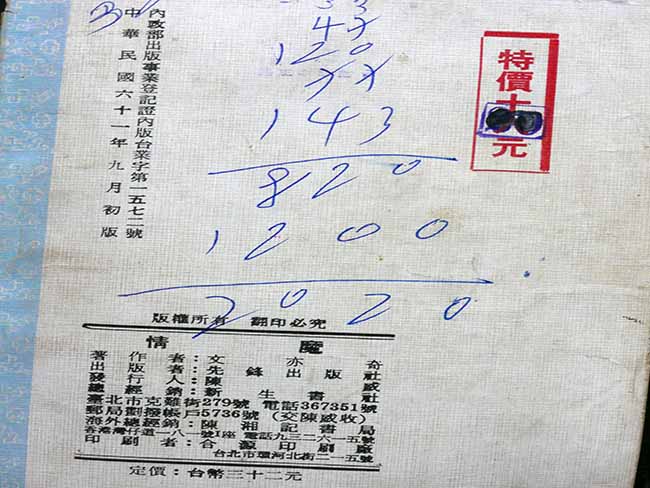 內政部出版事業登記證內版台業字第一五七二號
中華民國六十一年九月初版
120
143
820
1200
2020
特價十元
版權所有　翻印必究
情魔
著作者：文亦奇
出版者：先鋒出版社
發行人：陳威
總經銷：新生書社
臺北市克難街279號 電話367351號
郵局劃撥帳戶5736號（交陳威收）
海外總經銷：陳湘記書局
香港灣仔道一八一號I座 電話九三二六一五號
印刷者：合源印刷廠
台北市環河北街二一五號
定價：台幣三十二元